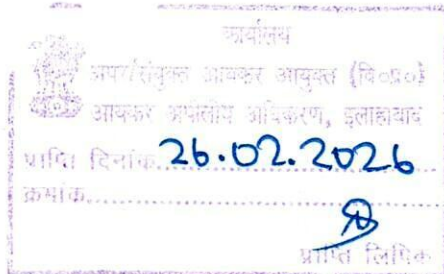 कार्यालय
अपर/संयुक्त आयकर आयुक्त (वि०प्र०)
आयकर अपीलीय अधिकरण, इलाहाबाद
प्राप्ति दिनांक..26.02.2026
क्रमांक..............................
प्राप्ति लिपिक